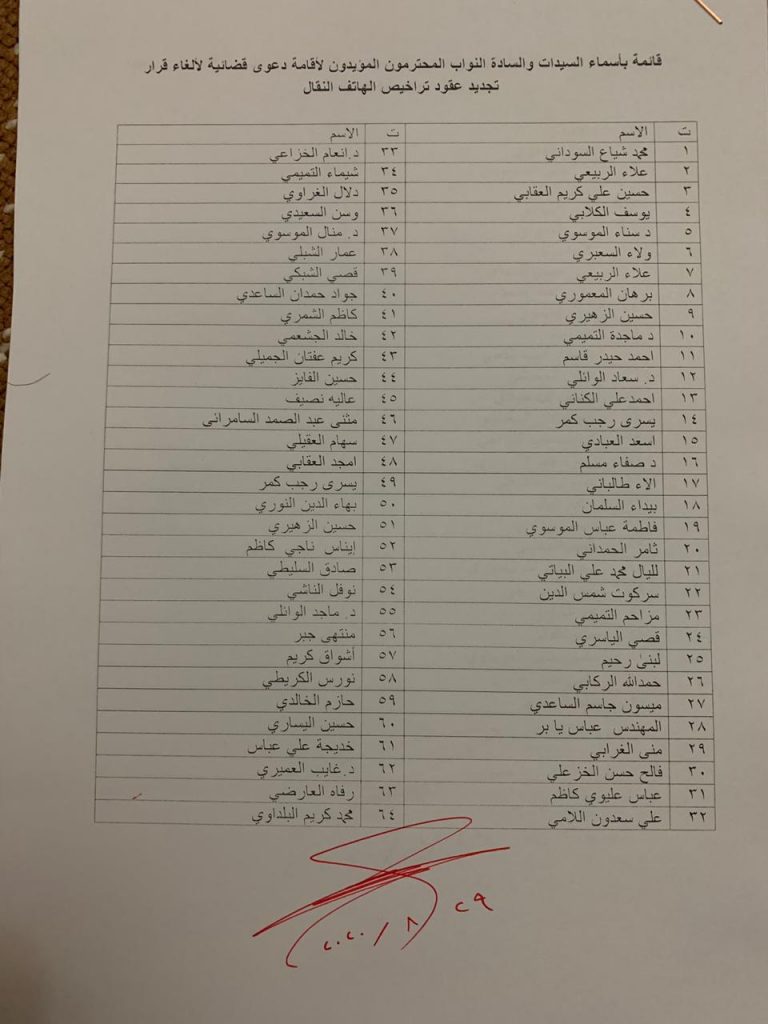 قائمة بأسماء السيدات والسادة النواب المحترمون المؤيدون لأقامة دعوى قضائية لألغاء قرار
تجديد عقود تراخيص الهاتف النقال
ت الاسم ت الاسم
١ محمد شياع السوداني ٣٣ د.انعام الخزاعي
٢ علاء الربيعي ٣٤ شيماء التميمي
٣ حسين علي كريم العقابي ٣٥ دلال الغراوي
٤ يوسف الكلابي ٣٦ وسن السعيدي
٥ د سناء الموسوي ٣٧ د. منال الموسوي
٦ ولاء السعبري ٣٨ عمار الشبلي
٧ علاء الربيعي ٣٩ قصي الشبكي
٨ برهان المعموري ٤٠ جواد حمدان الساعدي
٩ حسين الزهيري ٤١ كاظم الشمري
١٠ د ماجدة التميمي ٤٢ خالد الجشعمي
١١ احمد حيدر قاسم ٤٣ كريم عفتان الجميلي
١٢ د. سعاد الوائلي ٤٤ حسين الفايز
١٣ احمدعلي الكناني ٤٥ عاليه نصيف
١٤ يسرى رجب كمر ٤٦ مثنى عبد الصمد السامرائى
١٥ اسعد العبادي ٤٧ سهام العقيلي
١٦ د صفاء مسلم ٤٨ امجد العقابي
١٧ الاء طالباني ٤٩ يسرى رجب كمر
١٨ بيداء السلمان ٥٠ بهاء الدين النوري
١٩ فاطمة عباس الموسوي ٥١ حسين الزهيري
٢٠ ثامر الحمداني ٥٢ ايناس ناجي كاظم
٢١ لليال محمد علي البياتي ٥٣ صادق السليطي
٢٢ سركوت شمس الدين ٥٤ نوفل الناشي
٢٣ مزاحم التميمي ٥٥ د. ماجد الوائلي
٢٤ قصي الياسري ٥٦ منتهى جبر
٢٥ لبنىٰ رحيم ٥٧ أشواق كريم
٢٦ حمدالله الركابي ٥٨ نورس الكريطي
٢٧ ميسون جاسم الساعدي ٥٩ حازم الخالدي
٢٨ المهندس عباس يا بر ٦٠ حسين اليساري
٢٩ منى الغرابي ٦١ خديجة علي عباس
٣٠ فالح حسن الخزعلي ٦٢ د.غايب العميري
٣١ عباس عليوي كاظم ٦٣ رفاه العارضي
٣٢ علي سعدون اللامي ٦٤ محمد كريم البلداوي
٢٩ / ٨ / ٢٠٢٠